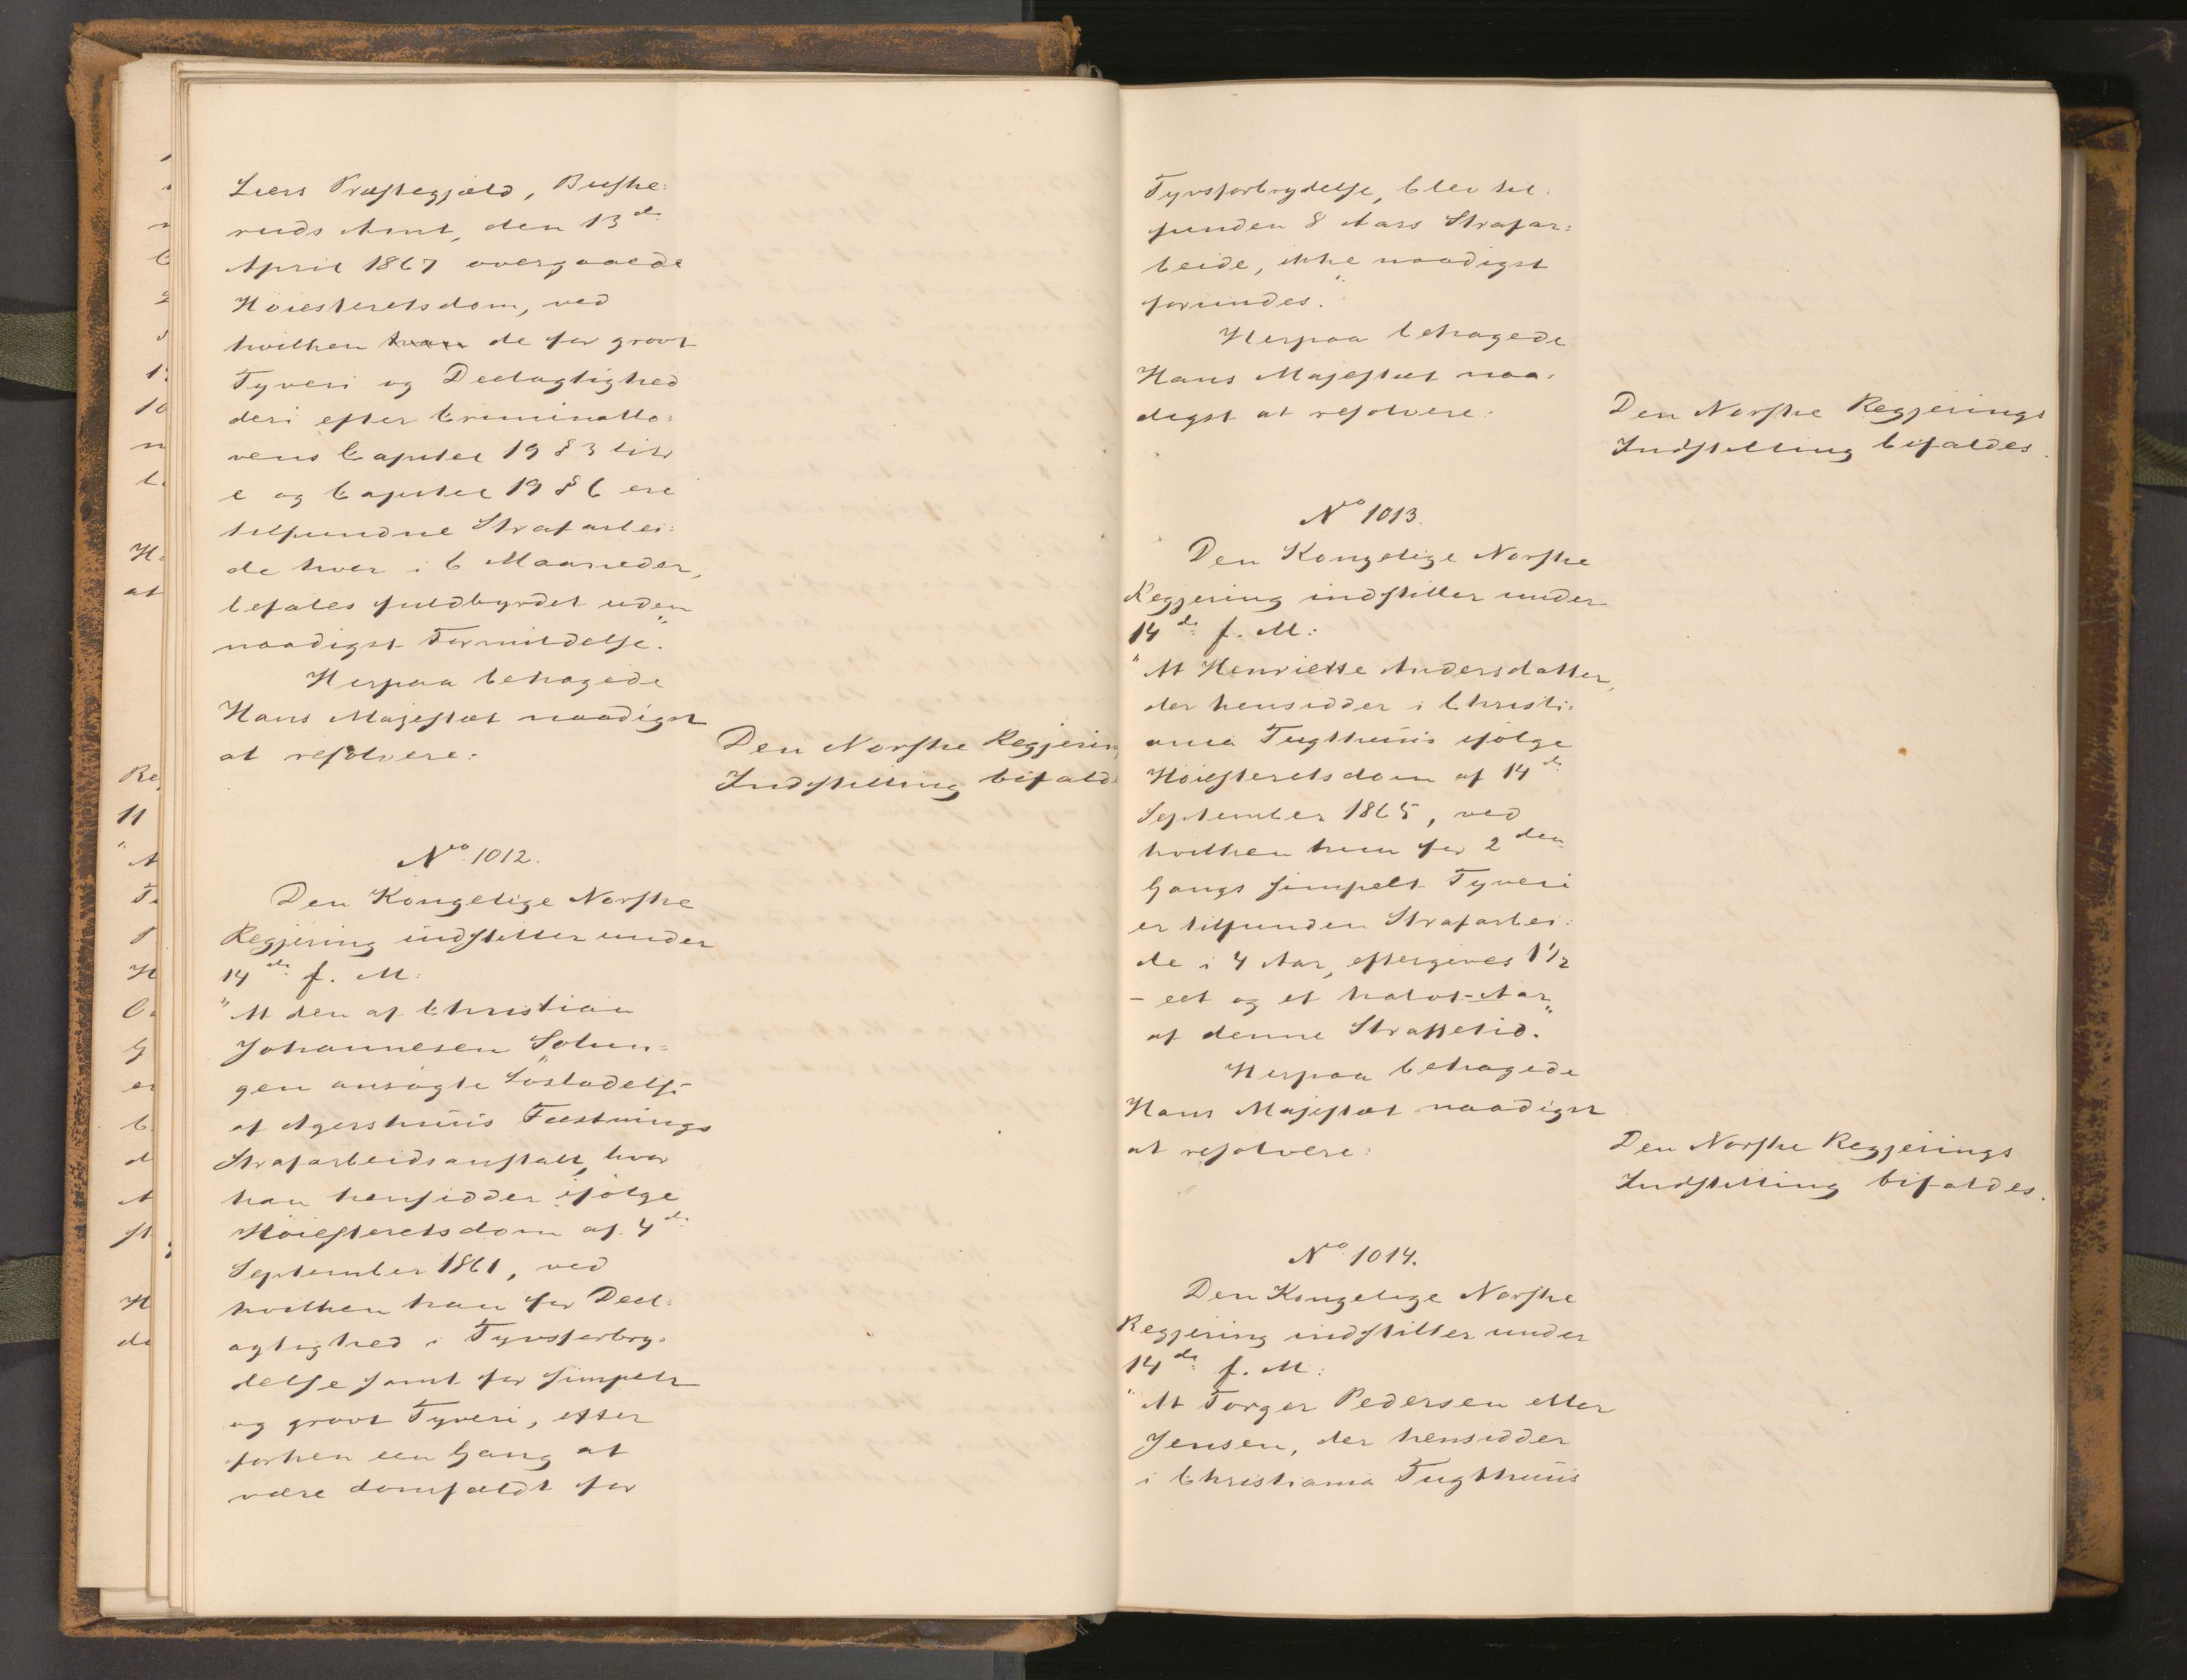 Liers Præstegjæld, Buske:
ruds Amt, den 13de
April 1867 overgaaede
Höiesteretsdom, ved
hvilken de for grovt
Tyveri og Deelagtighed
deri efter Criminallo:
vens Capitel 19 § 3 litr
e og Capitel 19 § 6 ere
tilfundne Strafarbei:
de hver i 6 Maaneder,
befales fuldbyrdet uden
naadigst Formildelse."
Herpaa behagede
Hans Majestæt naadigst
at resolvere:
Den Norske Regjerin
Indstilling bifald
No 1012.
Den Kongelige Norske
Regjering indstiller under
14de f. M:
"At den af Christian
Johannesen Solun:
gen ansögte Lösladelse
af Agershuus Fæstnings
Strafarbeidsanstalt, hvor
han hensidder ifölge
Höiesteretsdom af 4de
September 1861, ved
hvilken han for Deel:
agtighed i Tyvsforbry:
delse samt for simpelt
og grovt Tyveri, efter
forhen een Gang at
være domfældt for
Tyvsforbrydelse, blev til:
funden 8 Aars Strafar:
beide, ikke naadigst
forundes."
Herpaa behagede
Hans Majestæt naa:
digst at resolvere:
Den Norske Regjerings
Indstilling bifaldes.
No 1013.
Den Kongelige Norske
Regjering indstiller under
14de f. M:
"At Henriette Andersdatter,
der hensidder i Christi:
ania Tugthuus ifölge
Höiesteretsdom af 14de
September 1865, ved
hvilken hun for 2den
Gangs simpelt Tyveri
er tilfunden Strafarbei:
de i 4 Aar, eftergives 1 1/2
- eet og et halvt - Aar
af denne Straffetid."
Herpaa behagede
Hans Majestæt naadigst
at resolvere:
Den Norske Regjerings
Indstilling bifaldes.
No 1014.
Den Kongelige Norske
Regjering indstiller under
14de f. M:
"At Torger Pedersen eller
Jensen, der hensidder
i Christiania Tugthuus